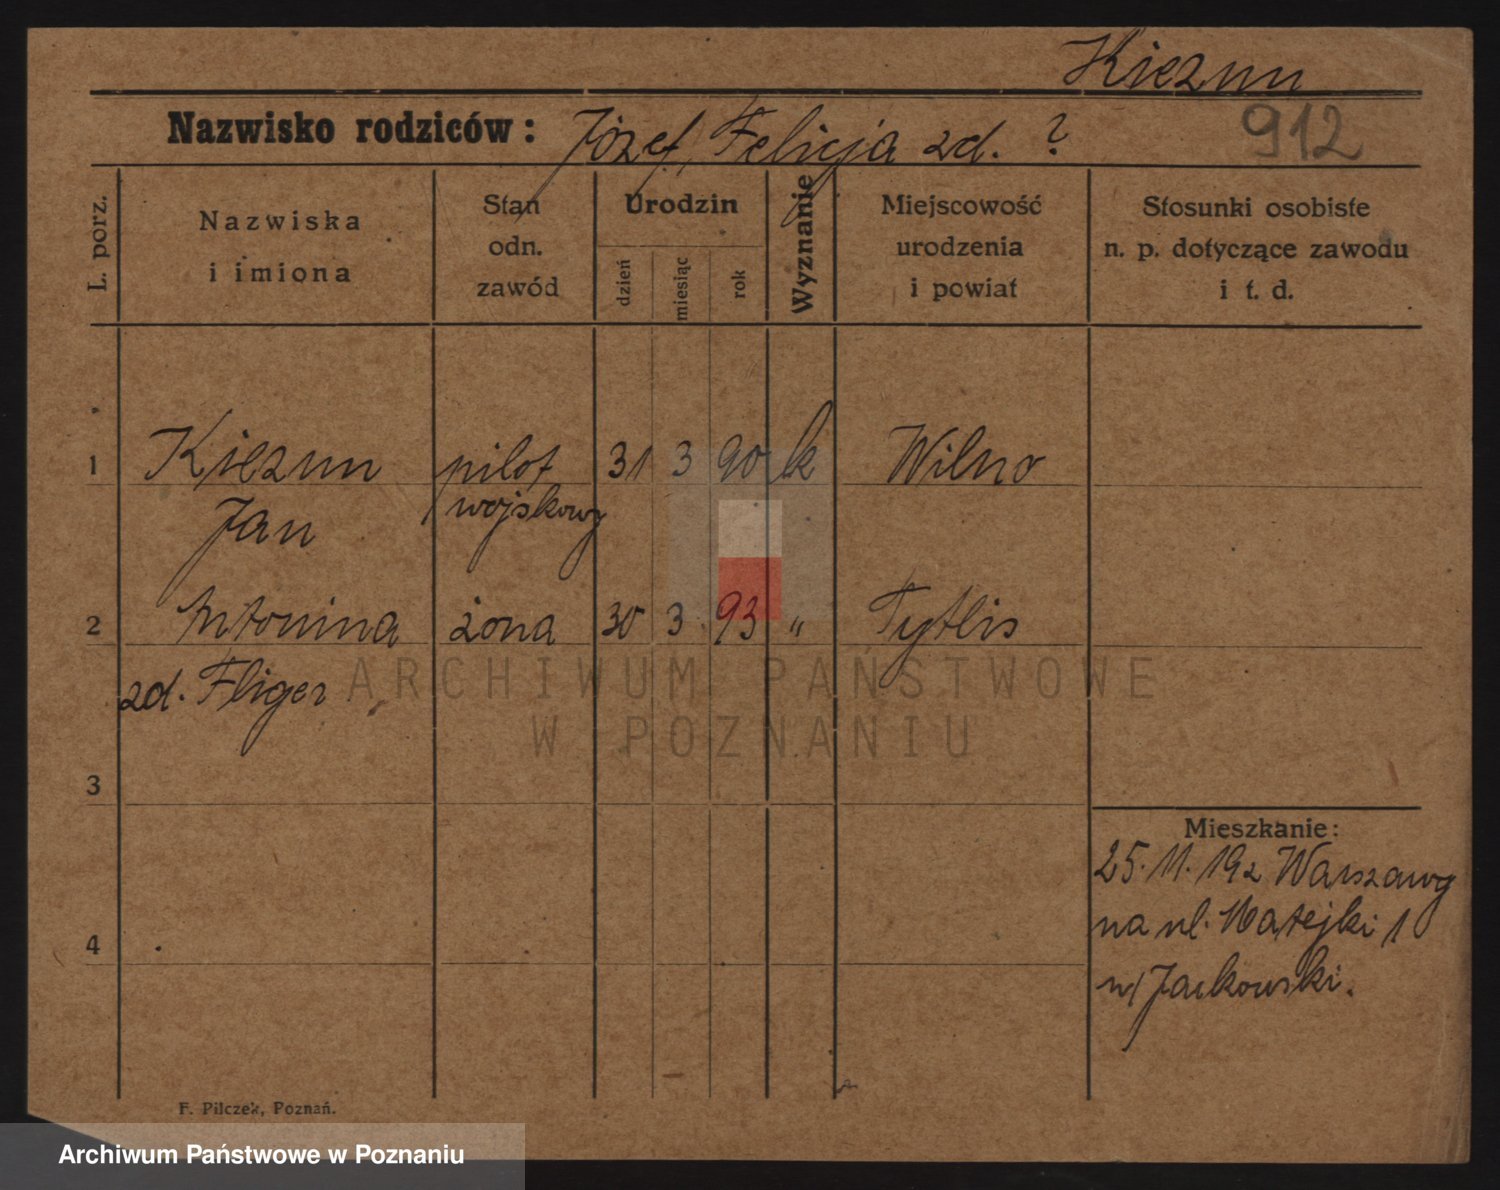 Kiezun
Nazwisko rodziców: Józef, Felicja zd. ?
912
L. porz.
Nazwiska
i imiona
Stan
odn.
zawód
Urodzin
dzień
miesiąc
rok
Wyznanie
Miejscowość
urodzenia
i powiat
Stosunki osobiste
n. p. dotyczące zawodu
i t. d.
1 Kiezun pilot 31 3 90 k Wilno
Jan wojskowy
2 Antonina żona 30 3. 93 " Tytlis
zd. Fliger
ARCHIWUM PAŃSTWOWE
W POZNANIU
3
Mieszkanie:
25. 11. 192 Warszawy
na ul. Matejki 1
4
w/ Jackowski.
F. Pilczek, Poznań.
Archiwum Państwowe w Poznaniu